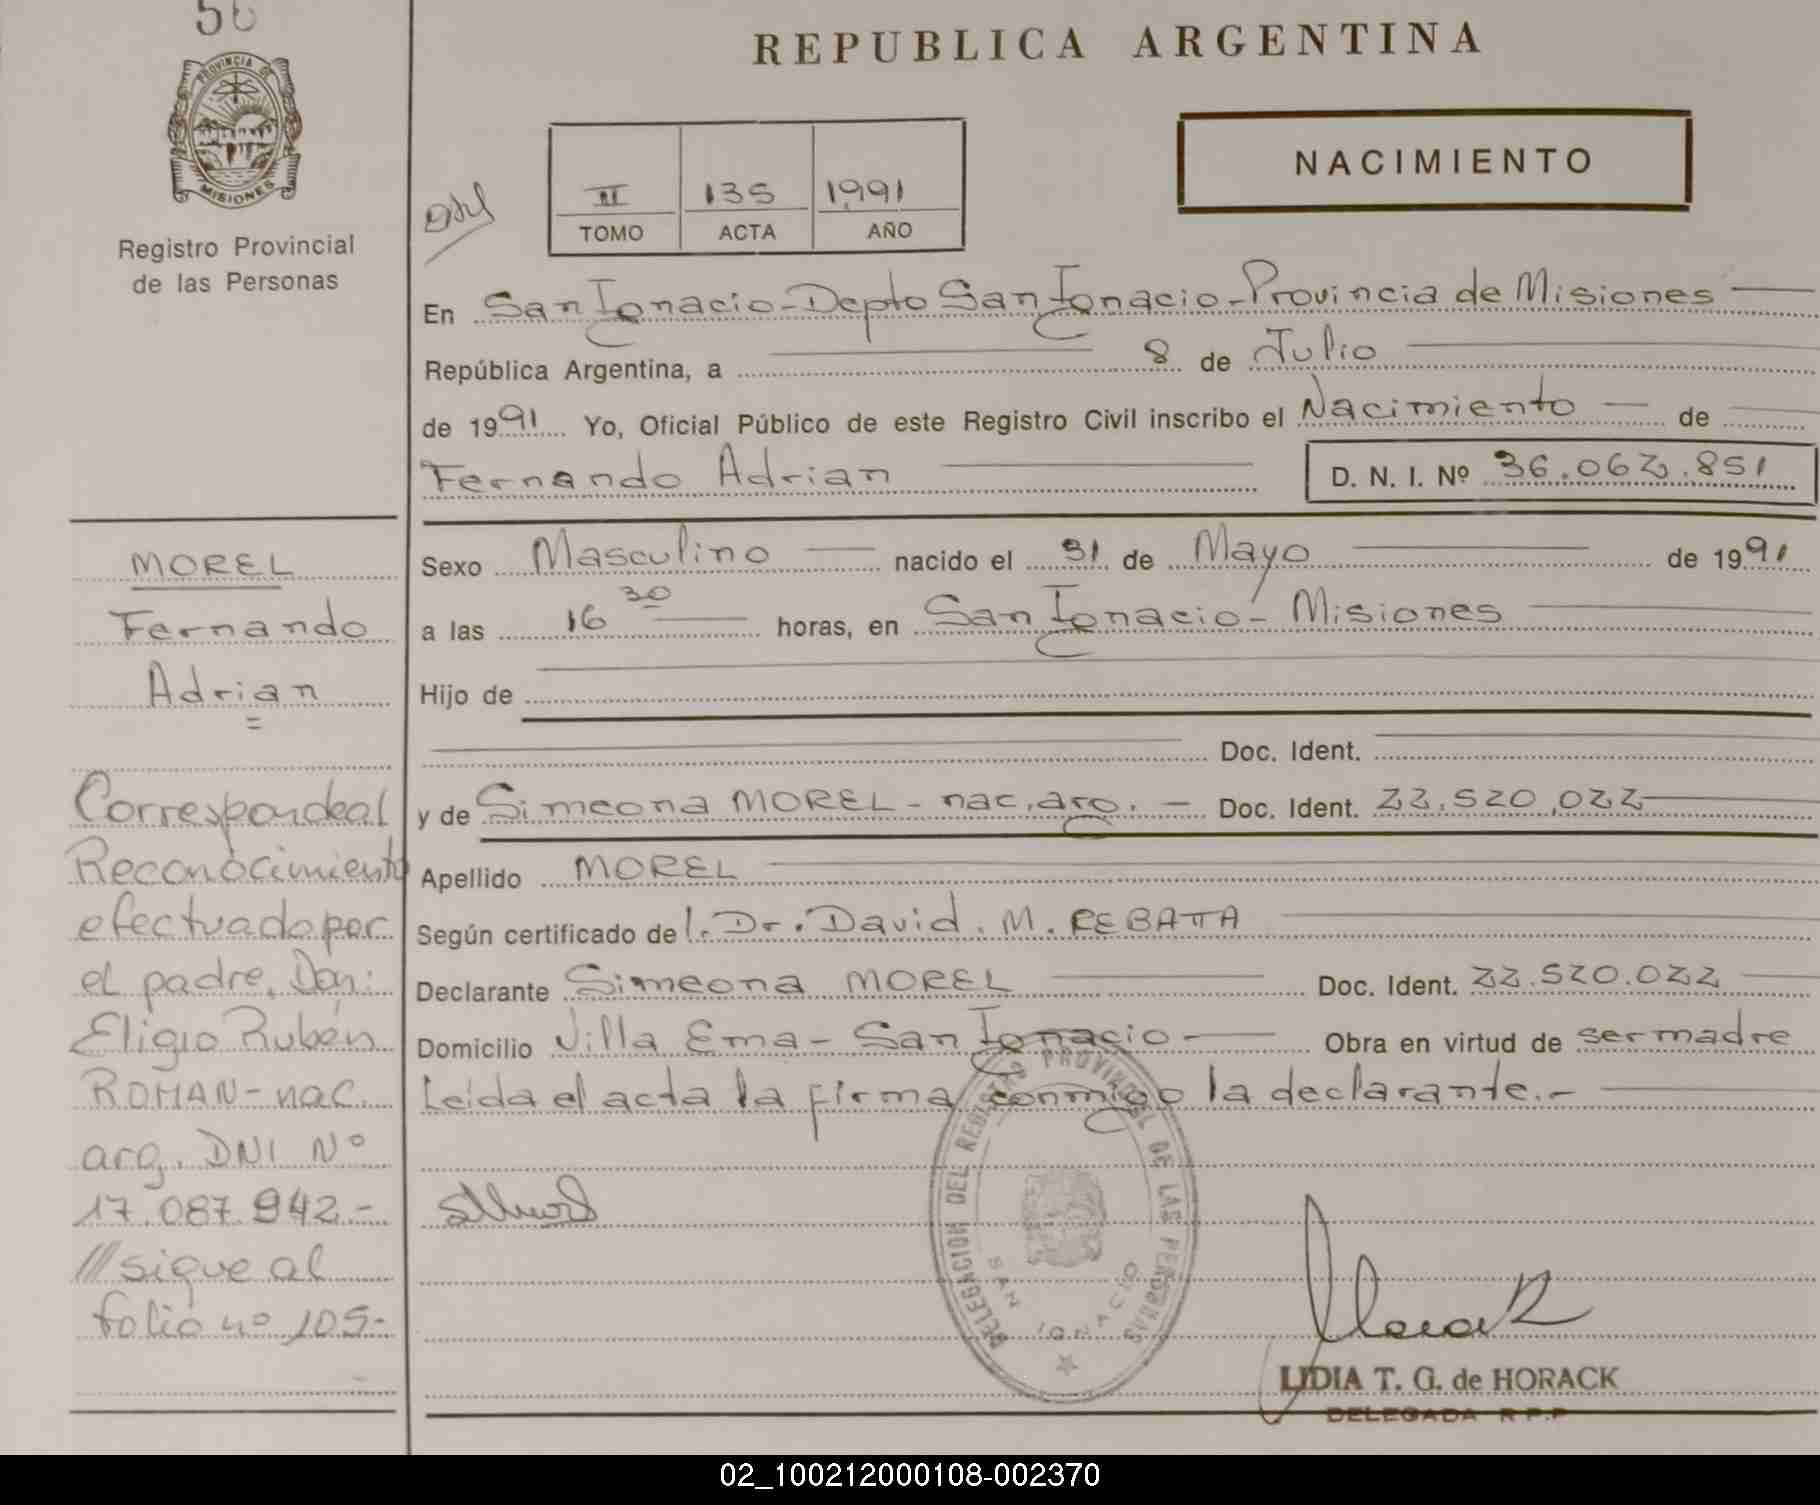 56
REPUBLICA ARGENTINA
PROVINCIA DE
MISIONES
Registro Provincial
de las Personas
II 135 1991
TOMO ACTA AÑO
NACIMIENTO
En San Ignacio - Depto San Ignacio - Provincia de Misiones
República Argentina, a 8 de Julio
de 1991 Yo, Oficial Público de este Registro Civil inscribo el Nacimiento de
Fernando Adrian
D. N. I. Nº 36.062.851
Sexo Masculino nacido el 31 de Mayo de 1991
a las 16 30 horas, en San Ignacio - Misiones
Hijo de
Doc. Ident.
y de Simeona MOREL - nac. arg. - Doc. Ident. 22.520.022
Apellido MOREL
Según certificado del. Dr. David. M. REBATTA
Declarante Simeona MOREL Doc. Ident. 22.520.022
Domicilio Villa Ema - San Ignacio Obra en virtud de ser madre
Leída el acta la firma conmigo la declarante.-
MOREL
Fernando
Adrian
Corresponde al
Reconocimiento
efectuado por
el padre, Don:
Eligio Rubén
ROMAN - nac.
arg. DNI Nº
17.087.942 -
/// sigue al
folio nº 105-
DELEGACION DEL REGISTRO PROVINCIAL DE LAS PERSONAS
SAN IGNACIO
LIDIA T. G. de HORACK
DELEGADA R.P.P
02_100212000108-002370